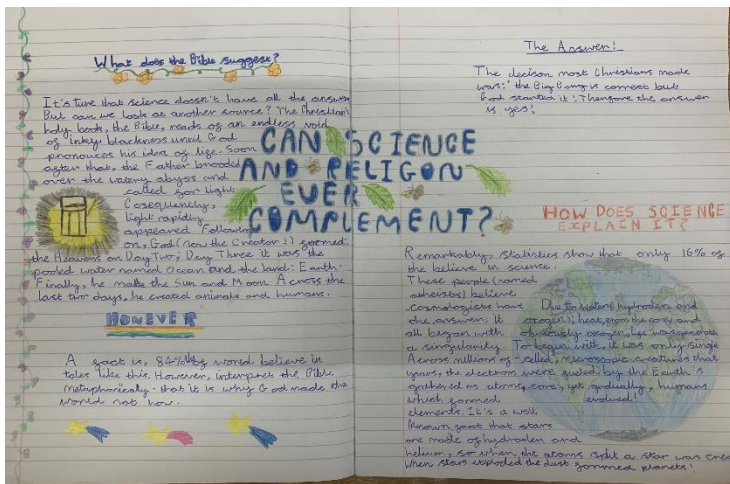 What does the Bible suggest?
It's ture that science doesn't have all the answers
But can we look at another source? The Christian's
holy book, the Bible, reads of an endless void
of inky blackness until God
pronounces his idea of life. Soon
after that, the Father brooded
over the watery abyss and
called for light.
Cosequently,
light rapidly
appeared. Following
on, God (now the Creator!) formed
the Heavens on Day Two; Day Three it was the
pooled water named Ocean and the land: Earth.
Finally, he make the Sun and Moon. Across the
last two days, he created animals and humans.
HOWEVER
A fact is, 84% of the world believe in
tales like this. However, interpret the Bible
metaphorically - that it is why God made the
world not how.
CAN SCIENCE
AND RELIGON
EVER
COMPLEMENT?
The Answer!
The decison most Christians made
was: 'the Big Bang is correct but
God started it'. Therefore the answer
is yes!
HOW DOES SCIENCE
EXPLAIN IT?
Remarkably, statistics show that only 16% of
the believe in science.
These people (named
atheists) believe
cosmologists have
the answer. It
all began with
a singularity.
Across millions of
years, the electrons were fueled by the
gathered as atoms,
which formed
elements. It's a well
known fact that stars
are made of hydroden and
helium, so when the atoms split a star was
When stars exploded the dust formed planets!
Due to water (hydroden and
oxogen), heat from the core, and
obviously oxogen, life was
To begin with, it was only single
-celled, microscopic creatures that
Earth's
core, yet gradually, humans
evolved!